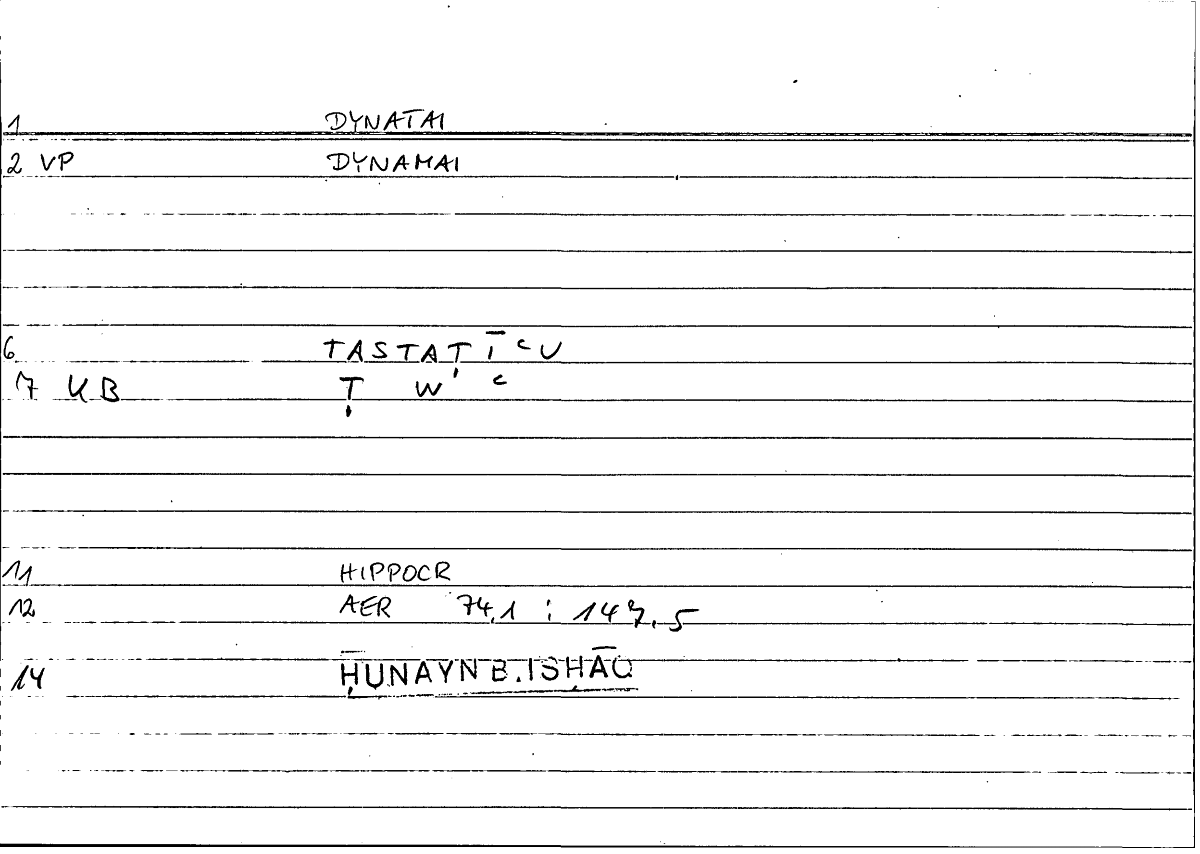 1 DYNATAI
2 VP DYNAMAI
6 TASTAṬĪʿU
7 KB Ṭ W ʿ
11 HIPPOCR
12 AER 74,1 : 147,5
14 ḤUNAYN B.ISḤĀQ